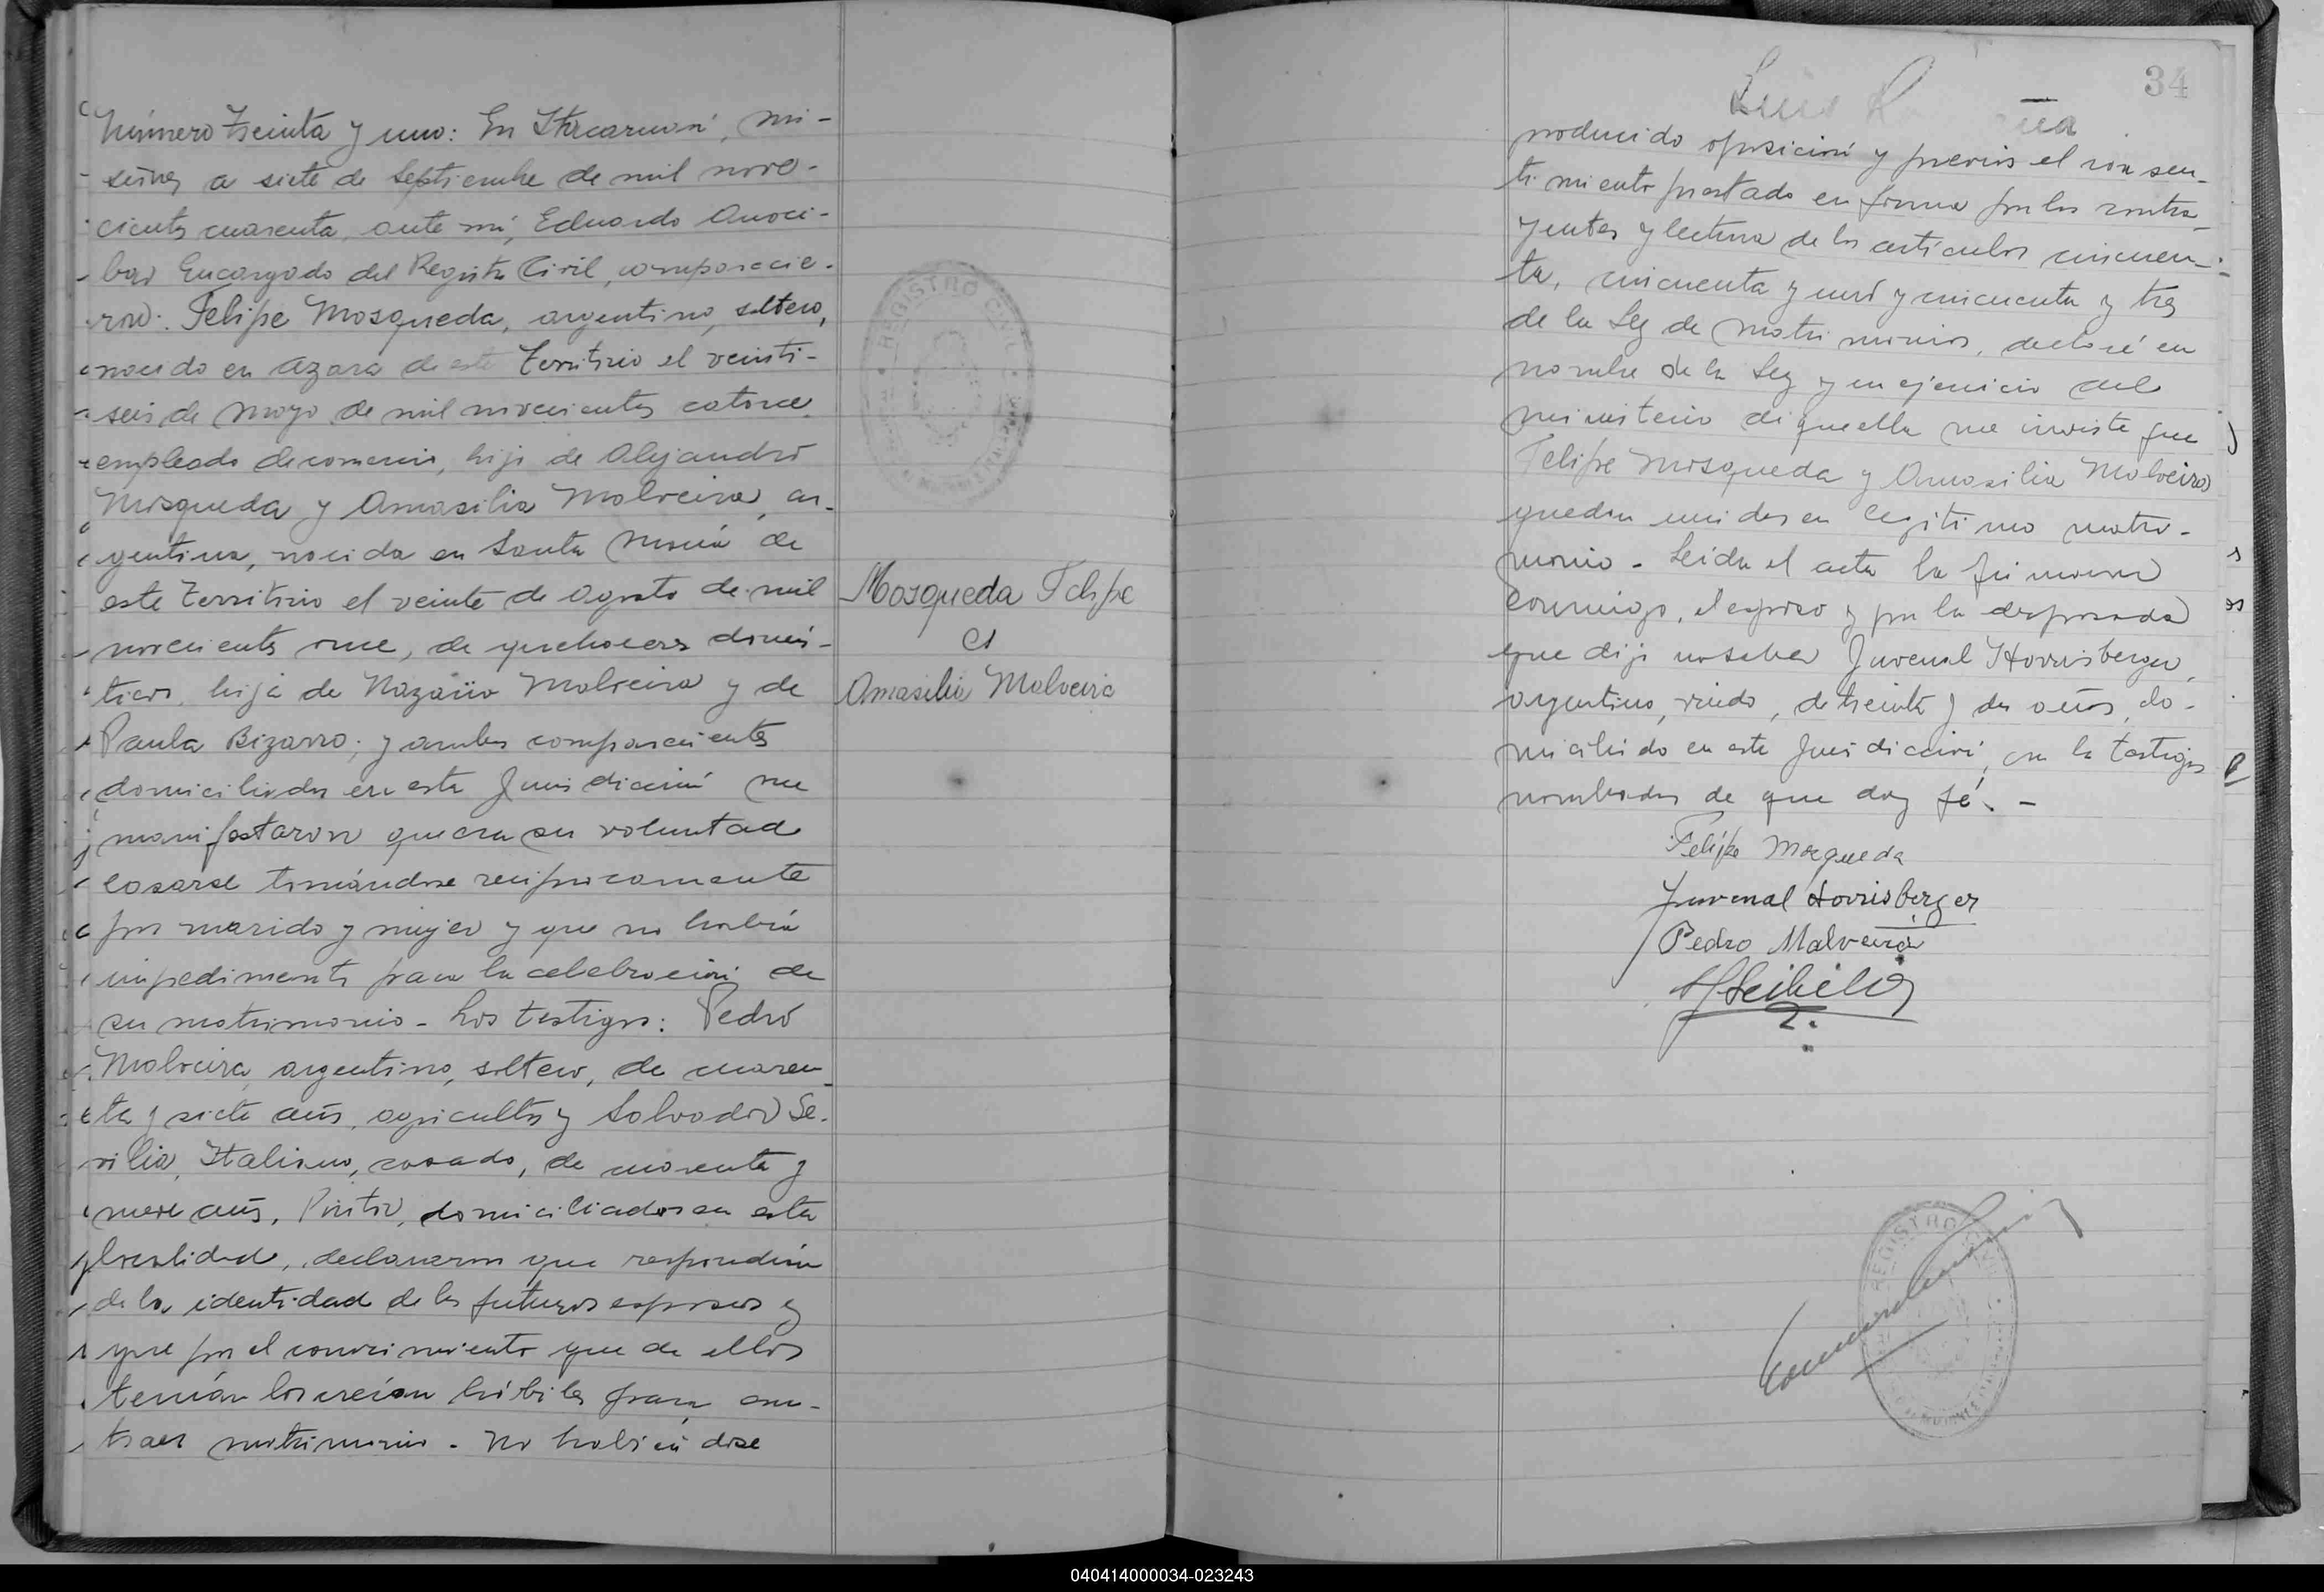 Número Treinta y uno: En Itacaruaré, Mi-
siones a siete de Septiembre de mil nove-
cientos cuarenta, ante mí, Eduardo
Encargado del Registro Civil, comparecie-
ron: Felipe Mosqueda, argentino, soltero,
nacido en Azara de este Territorio el veinti-
seis de Mayo de mil novecientos catorce
empleado de comercio, hijo de Alejandro
Mosqueda y Amasilia Malveira, ar-
gentina, nacida en Santa María de
este Territorio el veinte de Agosto de mil
novecientos once, de quehaceres domés-
ticos, hija de Nazario Malveira y de
Paula Bizarro; y ambos comparecientes
domiciliados en esta Jurisdicción me
manifestaron que era su voluntad
casarse tomándose recíprocamente
por marido y mujer y que no había
impedimento para la celebración de
su matrimonio - Los testigos: Pedro
Malveira, argentino, soltero, de cuaren-
ta y siete años, agricultor y Salvador Se-
vilia, Italiano, casado, de cuarenta y
nueve años, Pintor, domiciliados en esta
localidad, declararon que respondían
de la identidad de los futuros esposos y
que por el conocimiento que de ellos
tenían los creían hábiles para con-
traer matrimonio. No habiéndose
Mosqueda Felipe
c/
Amasilia Malveira
REGISTRO CIVIL
34
producido oposición y previo el consen-
timiento prestado en forma por los contra-
yentes y lectura de los artículos cincuen-
ta, cincuenta y uno y cincuenta y tres
de la Ley de Matrimonios, declaré en
nombre de la Ley y en ejercicio del
ministerio de que ella me inviste que
Felipe Mosqueda y Amasilia Malveira
quedan unidos en legítimo matri-
monio - Leída el acta la firmaron
conmigo, el esposo y por la desposada
que dijo no saber Juvenal Horrisberger,
argentino, viudo, de treinta y dos años, do-
miciliado en esta Jurisdicción, con los testigos
nombrados de que doy fé. -
Felipe Mosqueda
Juvenal Horrisberger
Pedro Malveira
REGISTRO
040414000034-023243